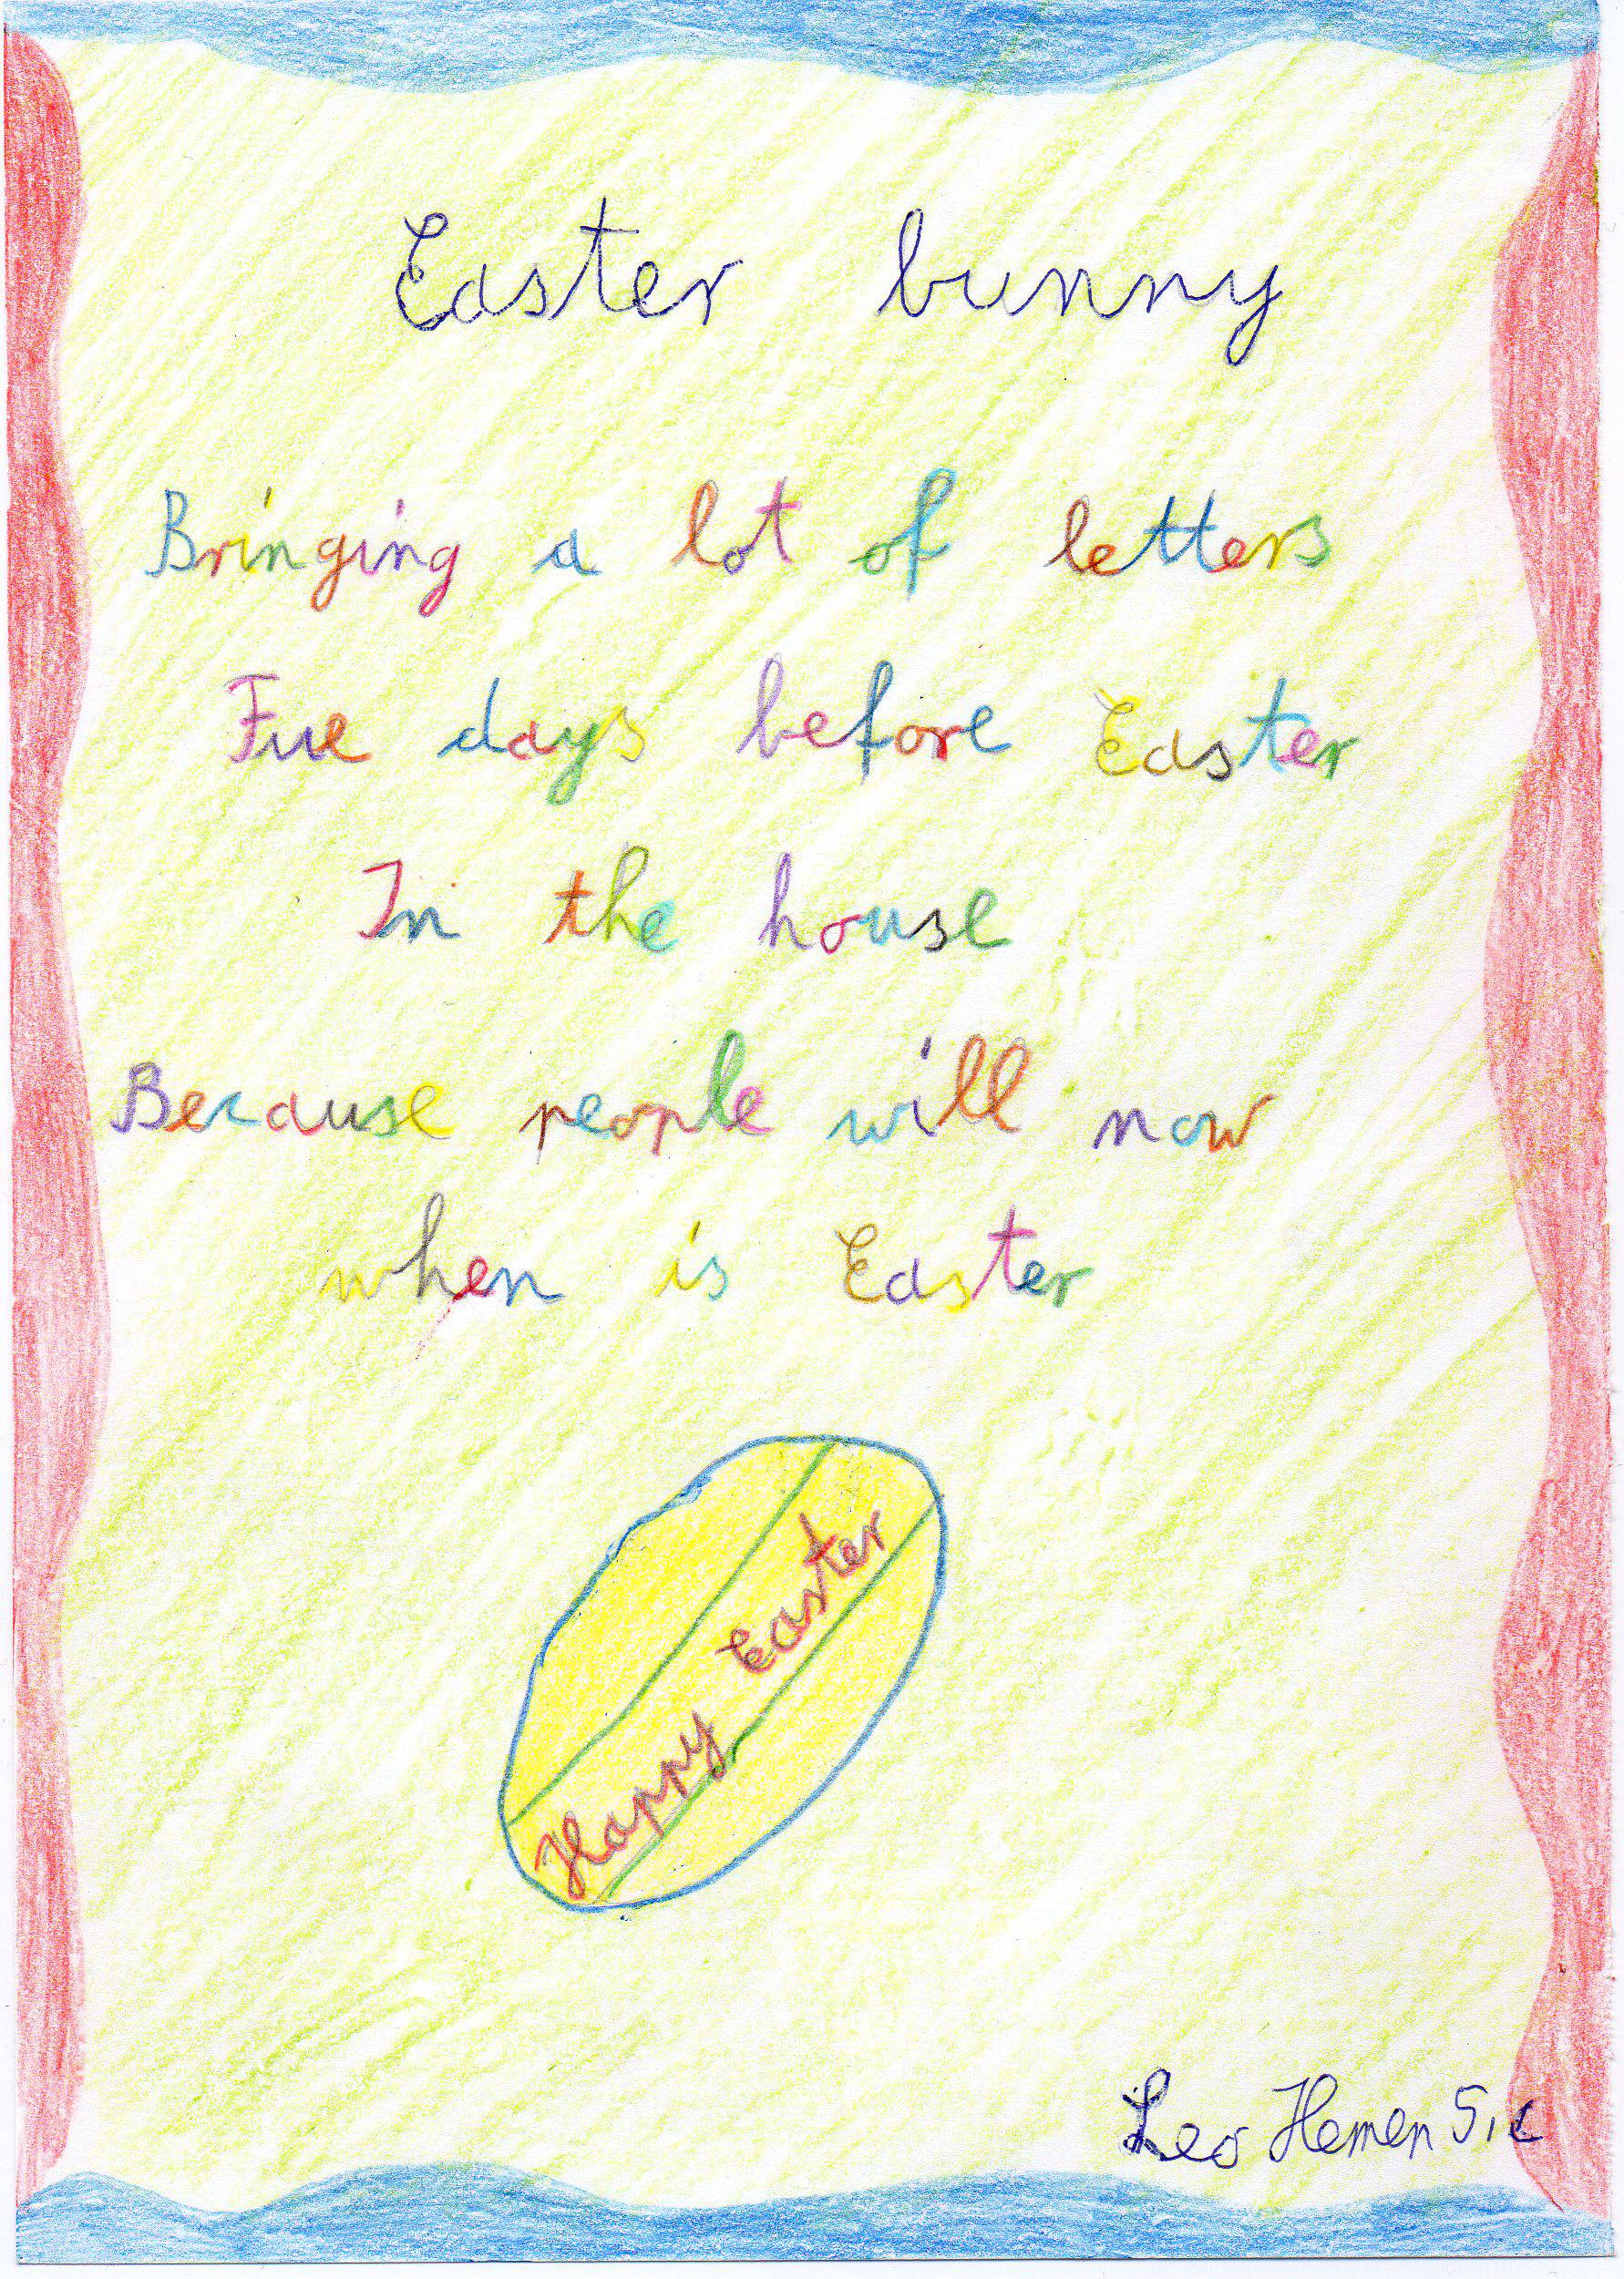 Easter bunny
Bringing a lot of letters
Fue days before Easter
In the house
Because people will now
when is Easter
Happy Easter
Leo Hemen 5,c